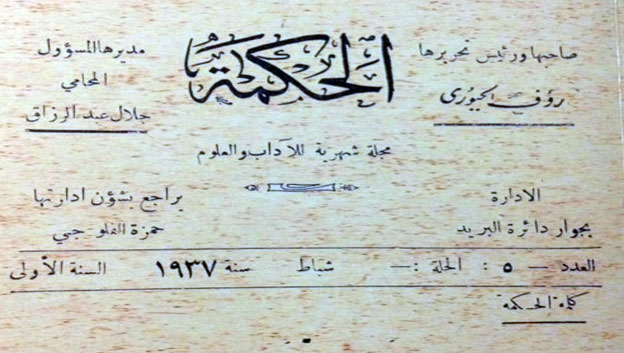 صاحبها ورئيس تحريرها
رؤوف الجبوري
الحكمة
مديرها المسؤول
المحامي
جلال عبد الرزاق
مجلة شهرية للآداب والعلوم
الادارة
بجوار دائرة البريد
يراجع بشؤن ادارتها
حمزة الفلوجي
العدد — ٥ : الحلة :— شباط سنة ١٩٣٧ السنة الأولى
كلمة الحكمة